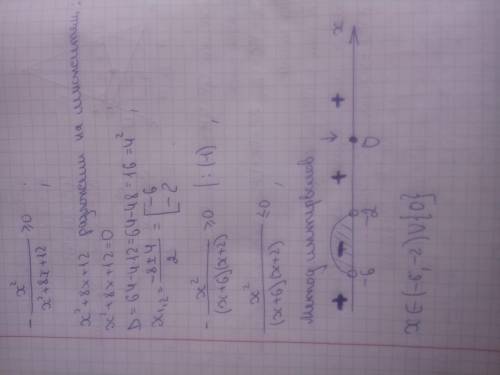 - x²/(x²+8x+12) ≥ 0 ;
x²+8x+12 разложим на множители:
x²+8x+12=0
D=64-4·12=64-48=16=4² ;
x₁,₂ = (-8±4)/2 = [-6 -2
- x²/((x+6)(x+2)) ≥ 0 | : (-1) ,
x²/((x+6)(x+2)) ≤ 0 ,
Метод интервалов
+ - + ↓ + x
-6 -2 0
x∈(-6;-2)∪{0}